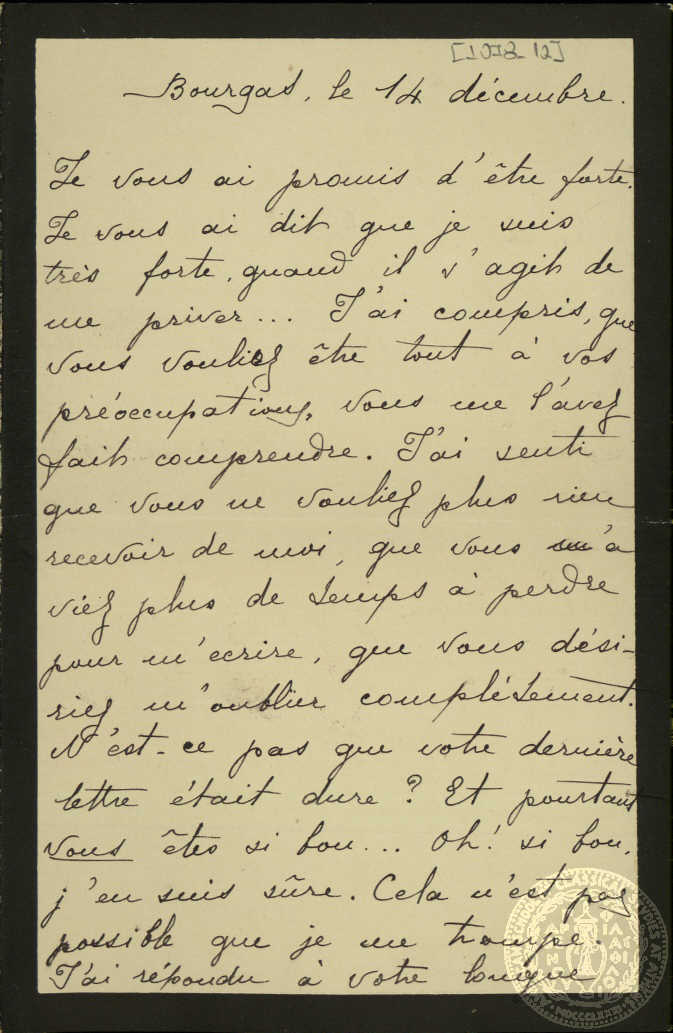 [1078-12]
Bourgas, le 14 décembre.
Je vous ai promis d'être forte.
Je vous ai dit que je suis
très forte, quand il s'agit de
me priver... J'ai compris, que
vous vouliez être tout à vos
préoccupations, vous me l'avez
fait comprendre. J'ai senti
que vous ne vouliez plus rien
recevoir de moi, que vous n'a
viez plus de temps à perdre
pour m'ecrire, que vous dési-
riez m'oublier complétement.
N'est-ce pas que votre dernière
lettre était dure ? Et pourtant
vous êtes si bon... Oh! si bon,
j'en suis sûre. Cela n'est pas
possible que je me trompe.
J'ai répondu à votre longue